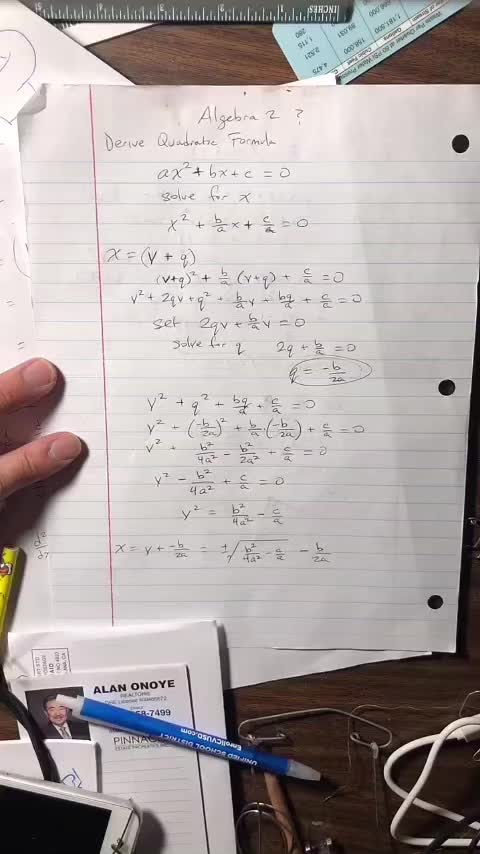 INCHES
Algebra 2 ?
Derive Quadratic Formula
ax² + bx + c = 0
solve for x
x² + b/a x + c/a = 0
x = (v + q)
(v+q)² + b/a (v+q) + c/a = 0
v² + 2qv + q² + b/a v + bq/a + c/a = 0
set 2qv + b/a v = 0
solve for q 2q + b/a = 0
q = -b/2a
v² + q² + bq/a + c/a = 0
v² + (-b/2a)² + b/a · (-b/2a) + c/a = 0
v² + b²/4a² - b²/2a² + c/a = 0
v² - b²/4a² + c/a = 0
v² = b²/4a² - c/a
x = v + -b/2a = ±√(b²/4a² - c/a) - b/2a
ALAN ONOYE
REALTOR®
8-7499
PINNAC
UNIFIED SCHOOL DISTRICT
EnrollCVUSD.com